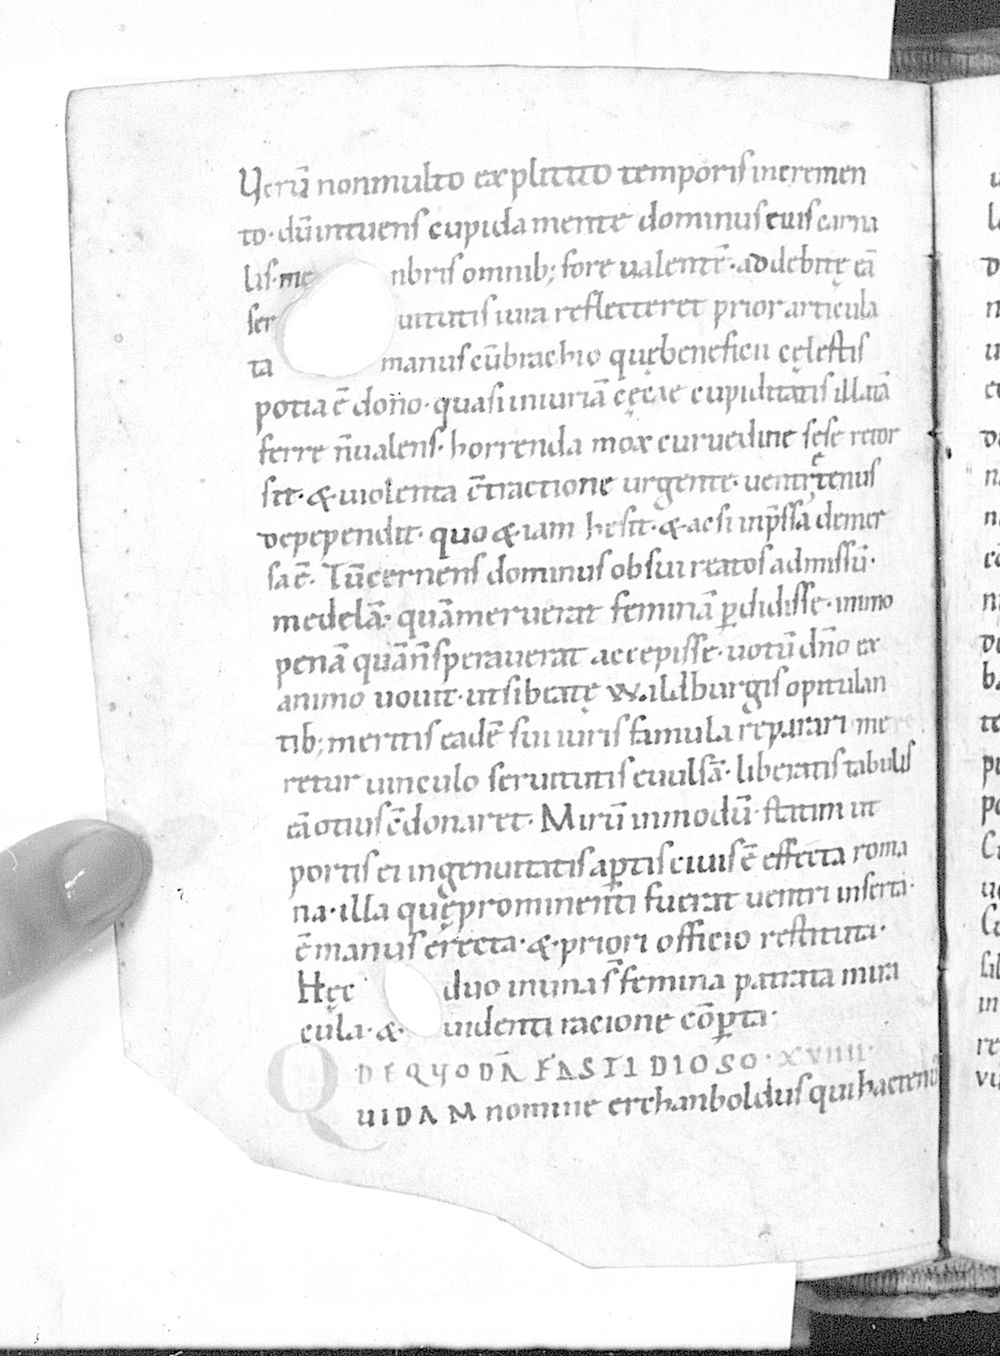 Verū non multo explicito temporis incremen
to· dū intuens cupida mente dominus euis carna
lis· me nbris omnib; fore ualentē· ad debitę eā
ser uitutis iura reflecteret prior articula
ta manus cū brachio quę beneficii cęlestis
potia ē dono· quasi iniuriā cęcae cupiditatis illatā
ferre ñ ualens· horrenda mox curuedine sese retor
sit· & uiolenta cōtractione urgente· uentri tenus
depependit· quo & iam hesit· & ac si inp̄ssa demer
sa ē· Tū cernens dominus ob sui reatos admissū·
medelā· quā meruerat feminā ꝑdidisse· immo
penā quā ñ sperauerat accepisse· uotū dño ex
animo uouit· ut si beatę Waldburgis opitulan
tib; meritis eadē sui iuris famula reparari mere
retur uinculo seruitutis euulsā· liberatis tabulis
eā otius ēdonaret· Mirū inmodū· statim ut
portis ei ingenuitatis aꝑtis ciuis ē effecta roma
na· illa quę prominenti fuerat uentri inserta·
ē manus erecta· & priori officio restituta·
Hęc duo in una s̄ femina patrata mira
cula· & uidenti racione cōꝑta·
DE QVODĀ FASTIDIOSO· XVIIII·
QUIDAM nomine erchanboldus qui hactenus